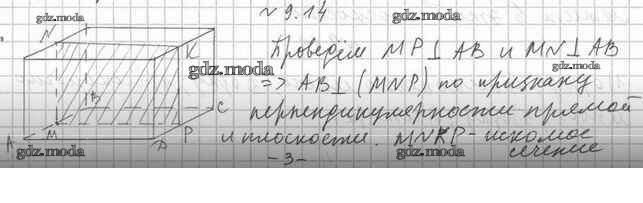 № 9.14
gdz.moda
gdz.moda
N
K
Проведём MP⊥AB и MN⊥AB
gdz.moda
gdz.moda
=> AB⊥(MNP) по признаку
B
C
перпендикулярности прямой
A
M
D
P
и плоскости. MNKP - искомое
сечение
gdz.moda
- 3 -
gdz.moda